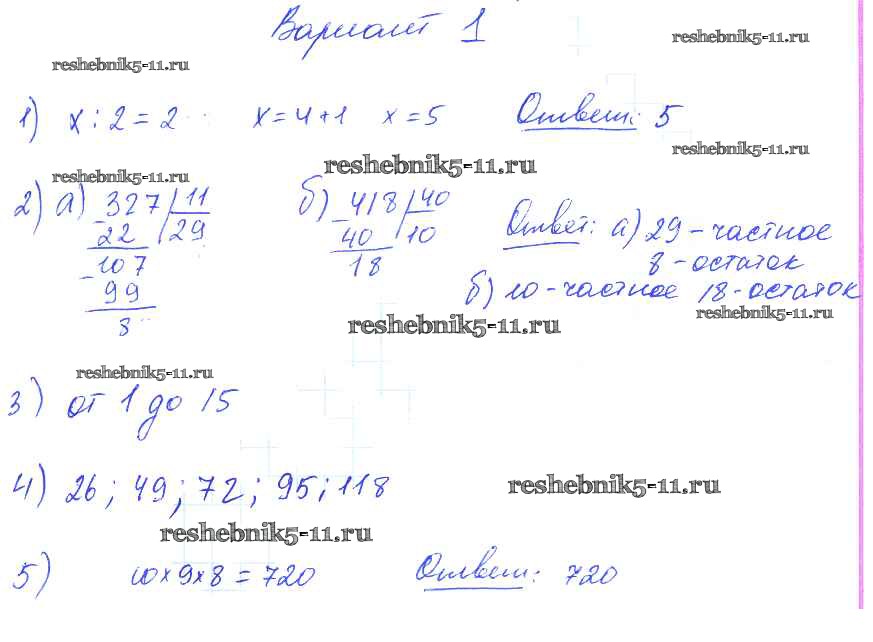 Вариант 1
reshebnik5-11.ru
reshebnik5-11.ru
1) x : 2 = 2 x = 4+1 x = 5 Ответ: 5
reshebnik5-11.ru
reshebnik5-11.ru
reshebnik5-11.ru
2) а) 327 | 11 б) 418 | 40 Ответ: а) 29 - частное
- 22 29 - 40 10 8 - остаток
- 107 18 б) 10 - частное 18 - остаток
99
8
reshebnik5-11.ru
reshebnik5-11.ru
reshebnik5-11.ru
3) от 1 до 15
4) 26; 49; 72; 95; 118
reshebnik5-11.ru
reshebnik5-11.ru
5) 10×9×8 = 720 Ответ: 720